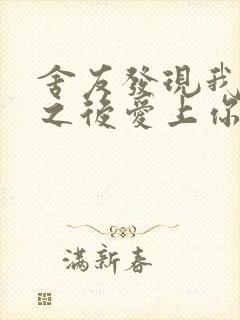 舍友發現我
之後愛上你
滿新春